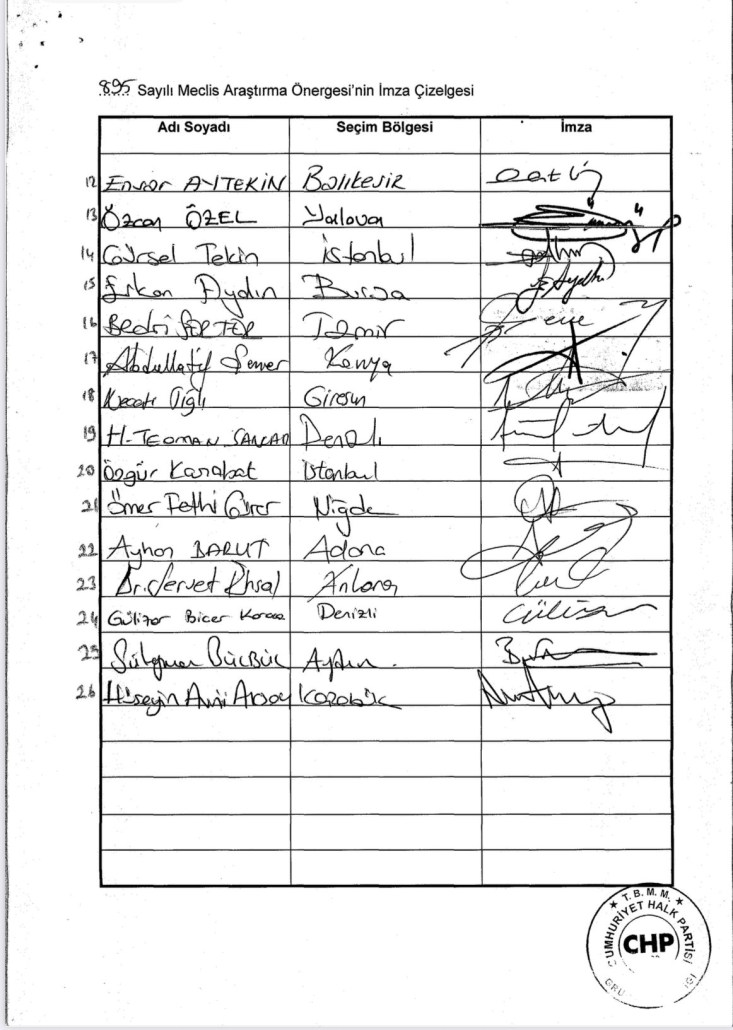 895 Sayılı Meclis Araştırma Önergesi'nin İmza Çizelgesi
Adı Soyadı Seçim Bölgesi İmza
12 Ensar AYTEKİN Balıkesir
13 Özcan ÖZEL Yalova
14 Gürsel Tekin İstanbul
15 Erkan Aydın Bursa
16 Bedri SERTER İzmir
17 Abdüllatif Şener Konya
18 Necati Tığlı Giresun
19 H. TEOMAN SANCAR Denizli
20 Özgür Karabat İstanbul
21 Ömer Fethi Gürer Niğde
22 Ayhan BARUT Adana
23 Dr. Servet Ünsal Ankara
24 Gülizar Biçer Karaca Denizli
25 Süleyman Bülbül Aydın
26 Hüseyin Avni Aksoy Karabük
T.B.M.M.
CUMHURİYET HALK PARTİSİ
CHP